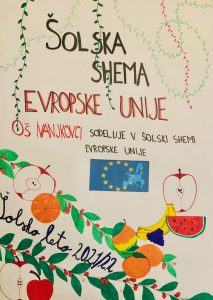 ŠOLSKA
SHEMA
EVROPSKE UNIJE
OŠ IVANJKOVCI SODELUJE V ŠOLSKI SHEMI
EVROPSKE UNIJE
Šolsko leto 2021/22